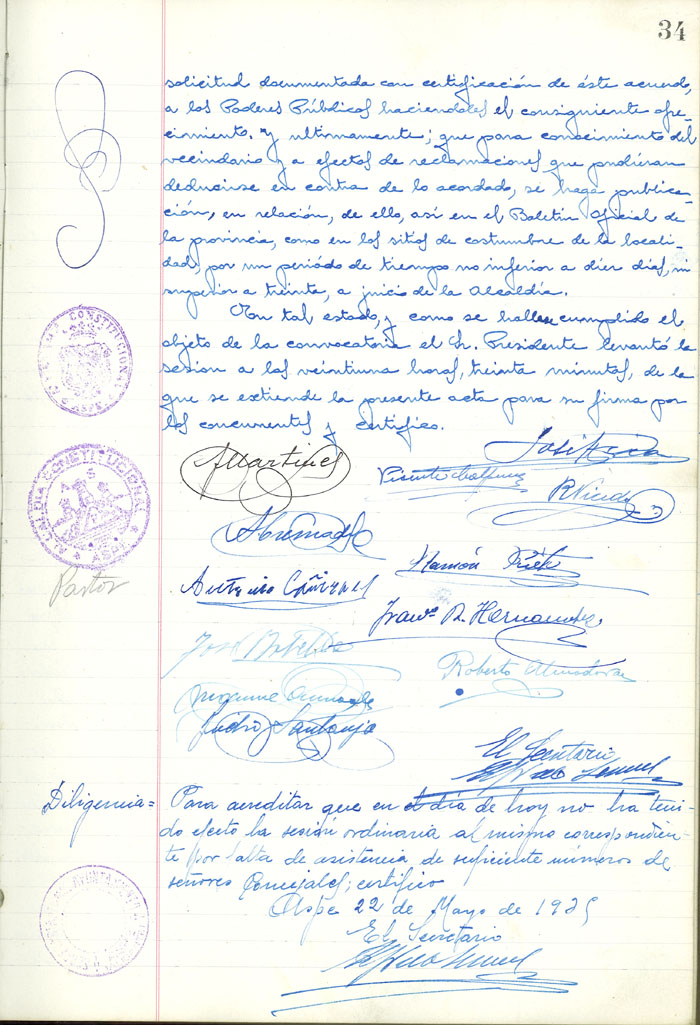 34
solicitud documentada con certificación de éste acuerdo,
a los Poderes Públicos haciendoles el consiguiente ofre-
cimiento. Y ultimamente; que para conocimiento del
vecindario y a efectos de reclamaciones que pudieran
deducirse en contra de lo acordado, se haga publica-
ción, en relación, de ello, así en el Boletin Oficial de
la provincia, como en los sitios de costumbre de la locali-
dad, por un periódo de tiempo no inferior a diez dias, ni
superior a treinta, a juicio de la Alcaldía.
En tal estado, y como se halle cumplido el
objeto de la convocatoria el Sr. Presidente levantó la
sesion a las veintiuna horas, treinta minutos, de la
que se extiende la presente acta para su firma por
los concurrentes y certifico.
CONSTITUCIONAL
AMartinez
José
Vicente
ALCALDIA CONSTITUCIONAL
ASPE
Pastor
Ramón Prieto
Antonio Cañizares
Franco. R. Hernandez
José
Roberto Almodovar
Isidro Santonja
El Secretario
Diligencia = Para acreditar que en el día de hoy no ha teni-
do efecto la sesión ordinaria al mismo correspondien-
te por falta de asistencia de suficiente números de
señores Concejales; certifico
Aspe 22 de Mayo de 1925
El Secretario